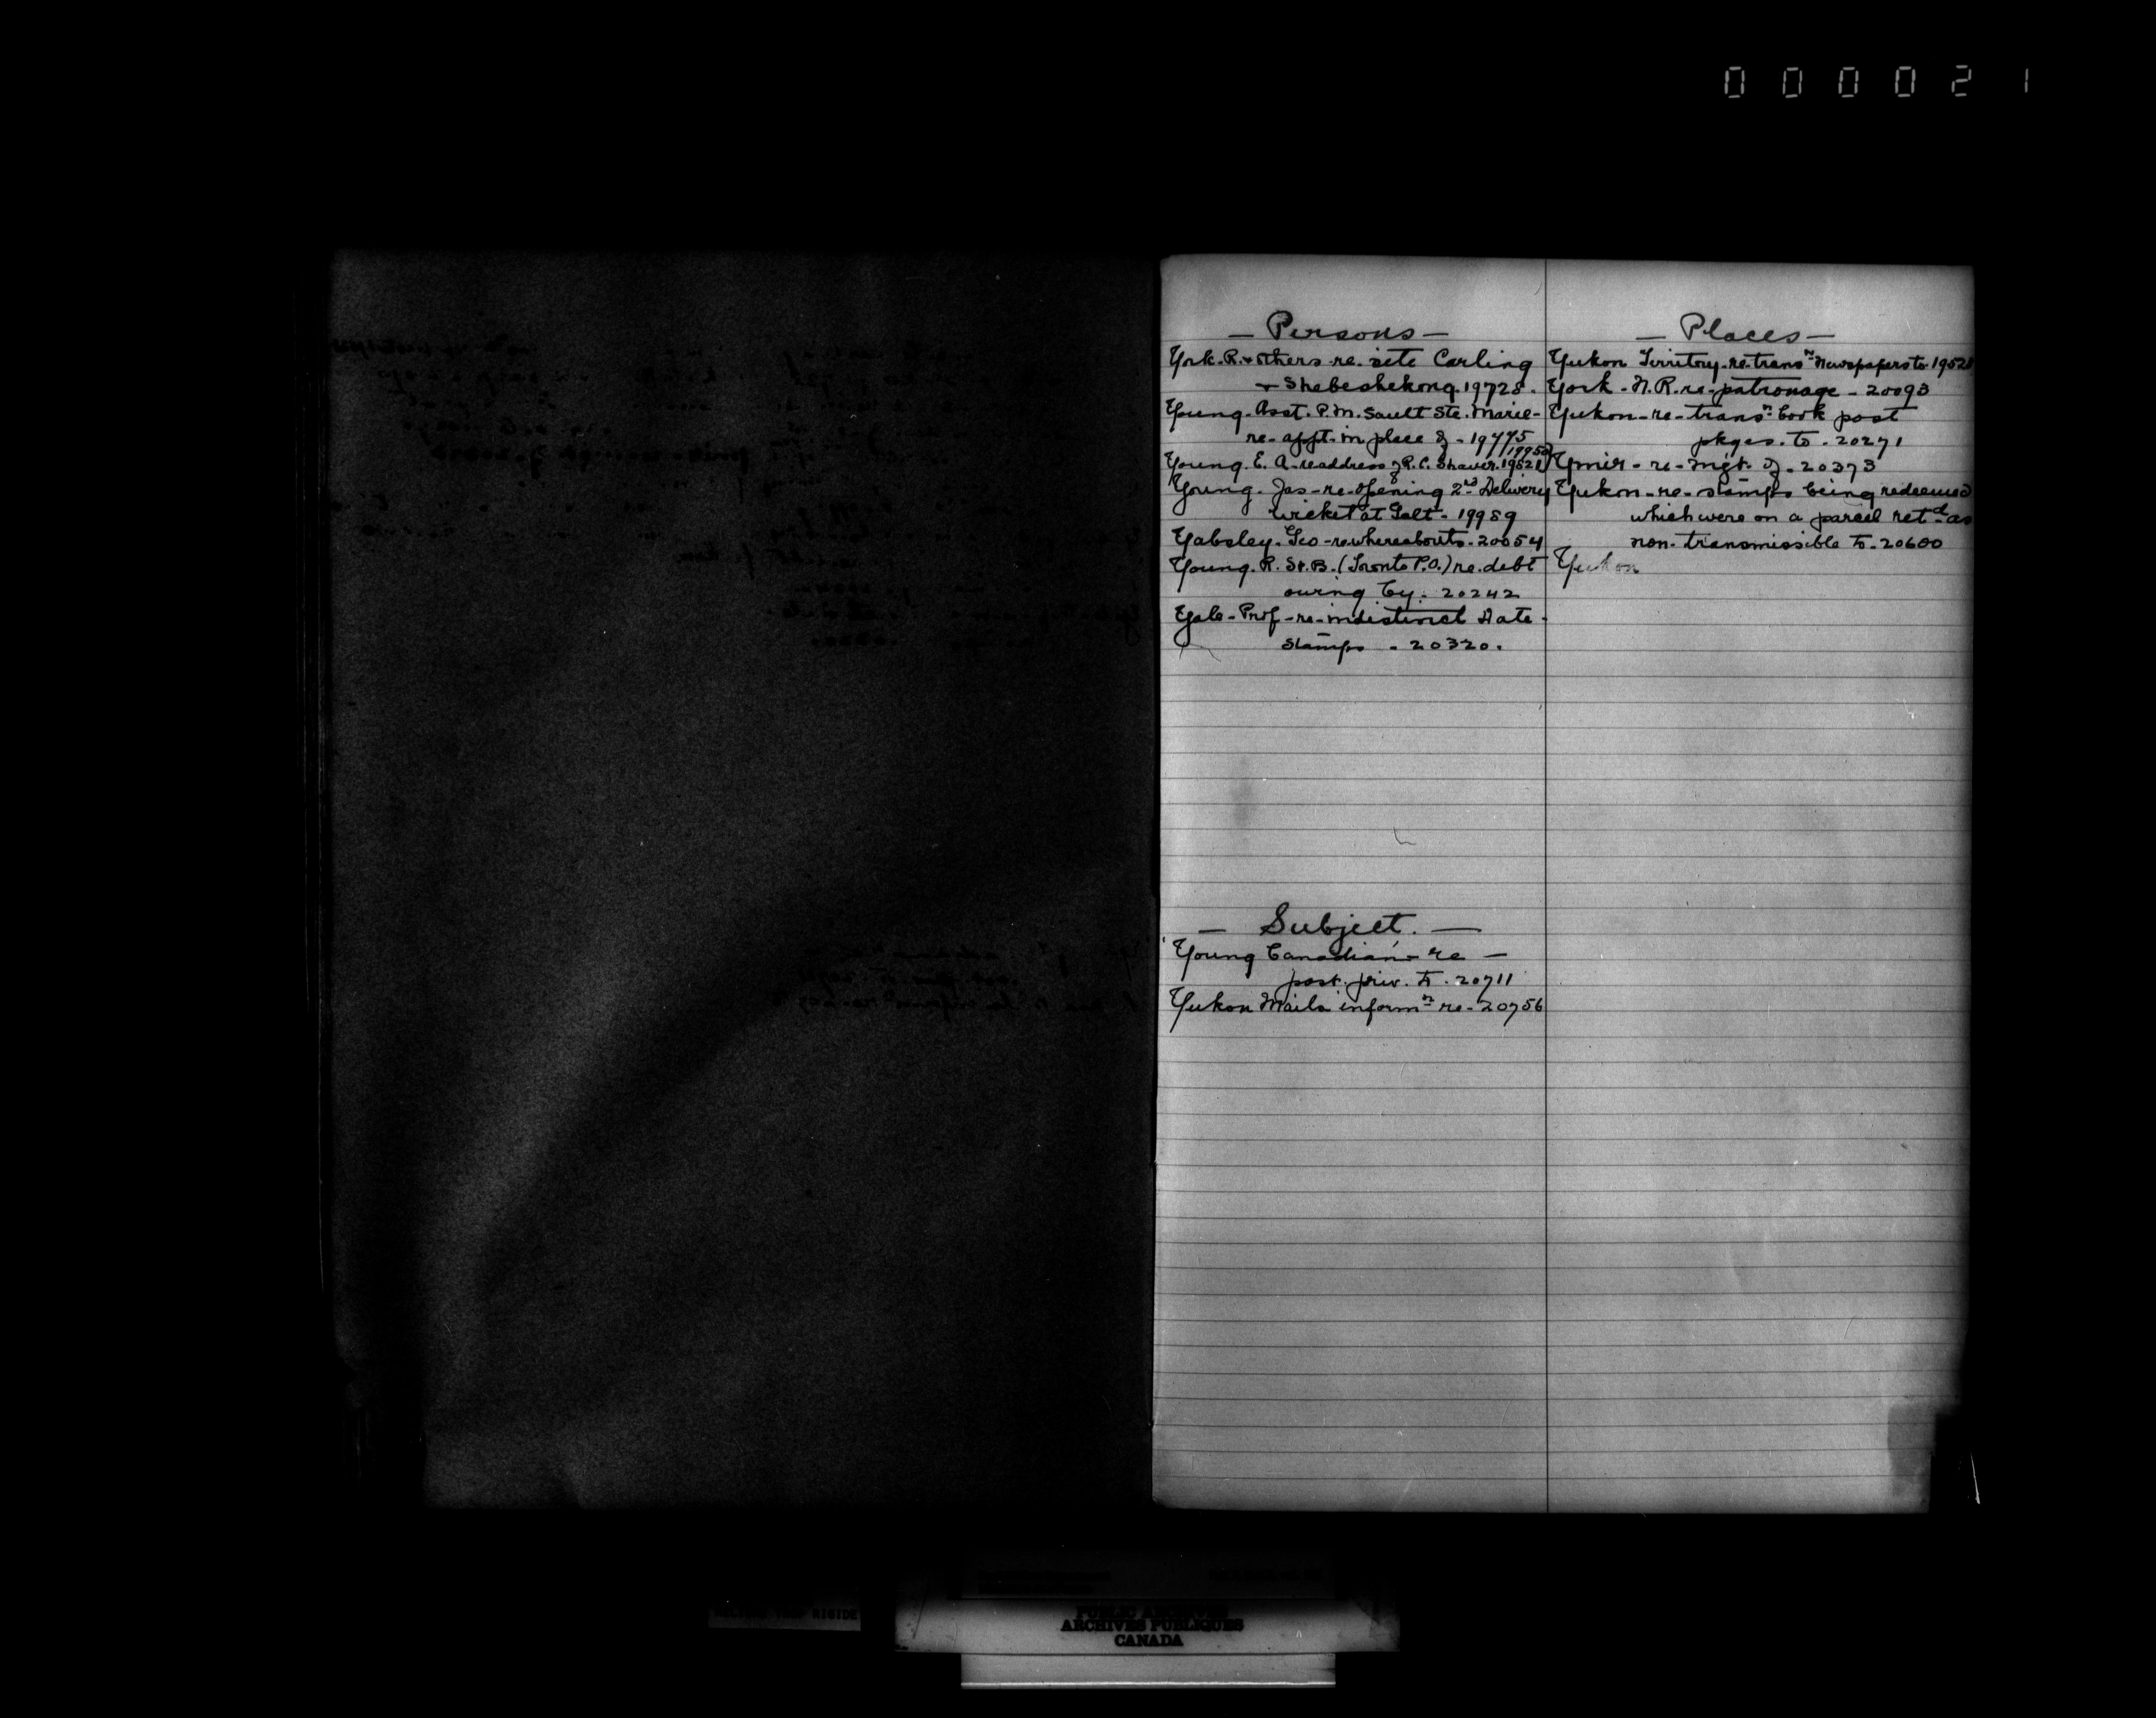 000021
— Persons —
York. R. & others. re. site Carling
& Shebeshekong. 19728.
Young. Asst. P.M. Sault Ste. Marie-
re-appt. in place of - 19775
19950
Young. E. A. re address of R. C. Shaver. 19521
Young. Jas - re - opening 2nd Delivery
wicket at Galt - 19989
Yabsley. Geo - re whereabouts - 20054
Young. R. St. B. (Toronto P.O.) re. debt
owing by. 20242
Yale - Prof - re - indistinct Date -
Stamps - 20320.
— Subject. —
Young Canadian - re —
post. priv. to. 20711
Yukon Mails inform n re - 20756
— Places —
Yukon Territory - re - trans n Newspapers to 1952
York - N. R. re - patronage - 20093
Yukon - re - trans n book post
pkges. to - 20271
Ymir - re - mgt. of - 20373
Yukon - re - stamps being redeemed
which were on a parcel ret d as
non-transmissible to - 20600
Yukon
PUBLIC ARCHIVES
ARCHIVES PUBLIQUES
CANADA